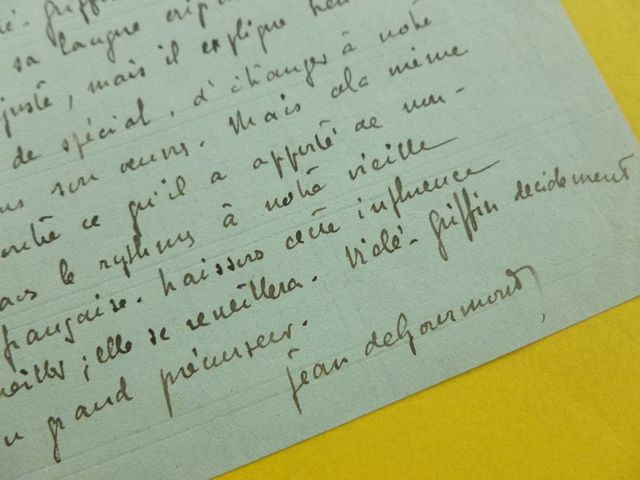 lé-Griffin
sa langue orig
juste, mais il explique heu
de spécial, d'étranger à notre
ns son œuvre. Mais cela même
ontre ce qu'il a apporté de nou-
ans le rythme à notre vieille
française. Laissons cette influence
meiller ; elle se réveillera. Vielé-Griffin décidément
un grand précurseur.
Jean de Gourmont